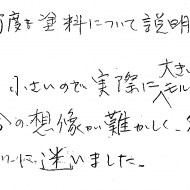 度も塗料について説明
小さいので実際に大き
モル
の想像が難かしく、
に迷いました。